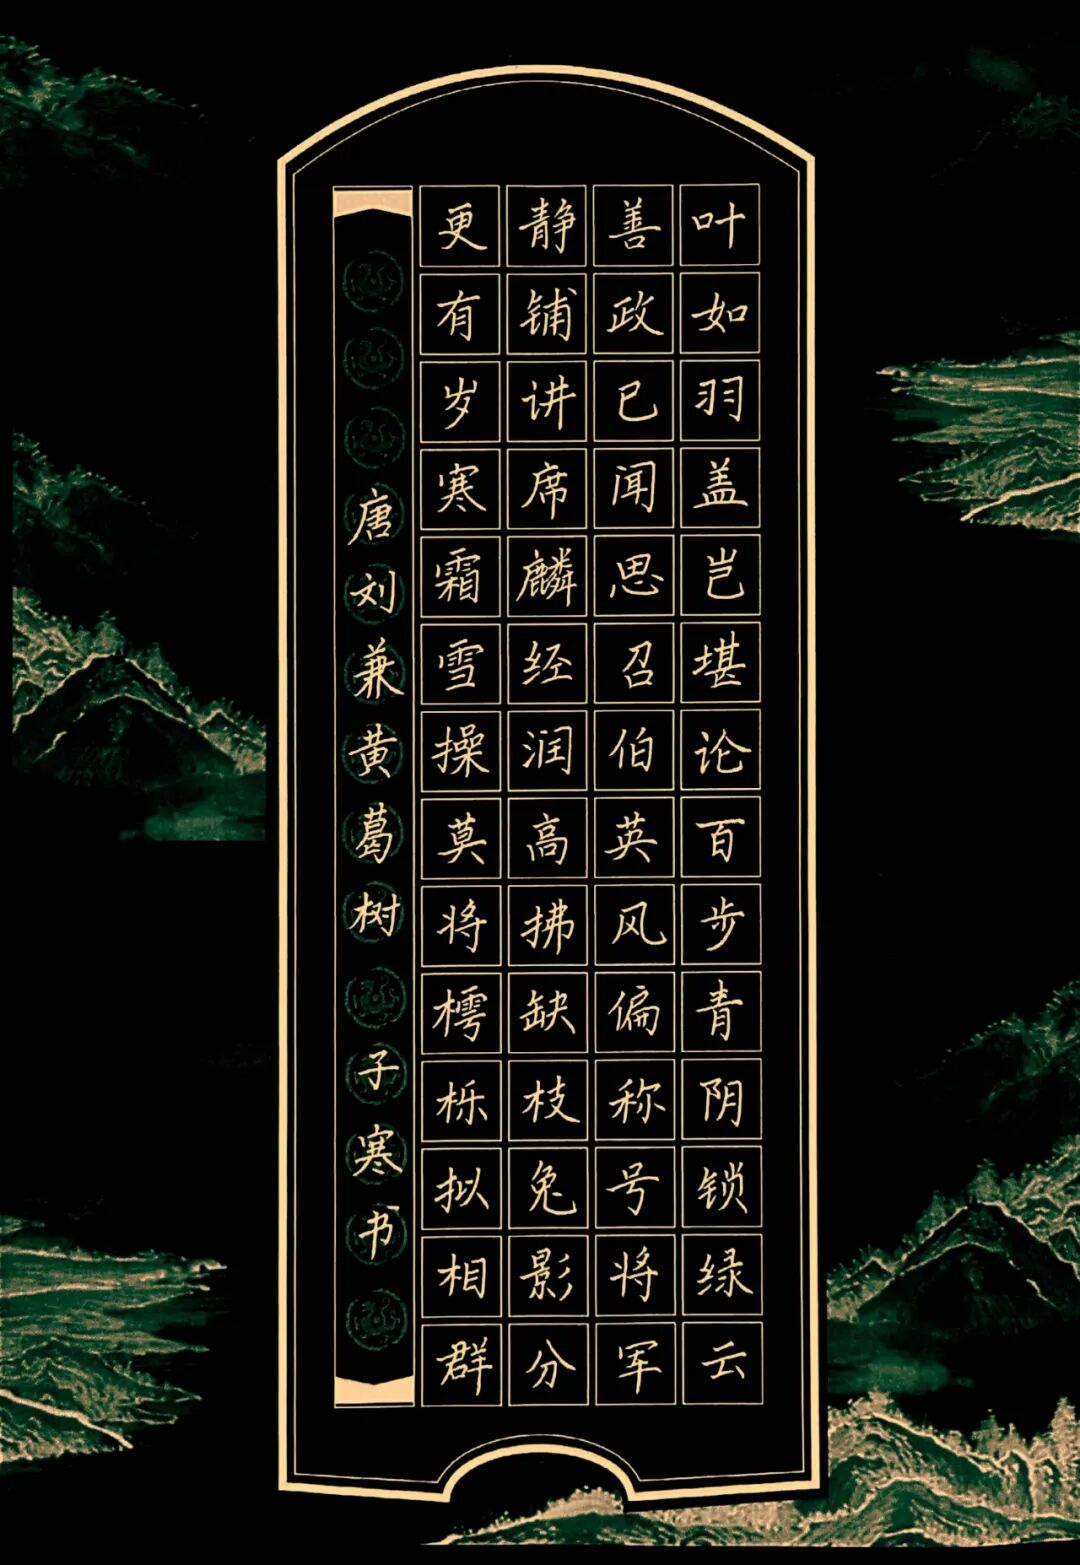 叶如羽盖岂堪论百步青阴锁绿云
善政已闻思召伯英风偏称号将军
静铺讲席麟经润高拂缺枝兔影分
更有岁寒霜雪操莫将樗栎拟相群
唐刘兼黄葛树 子寒书